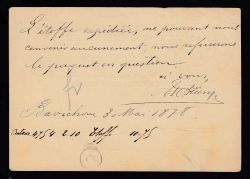 L'étoffe expédiée, ne pouvant nous
convenir aucunement, nous refuserons
le paquet en question
à vous,
3 Mai 1878.
4754 2.10 Etoffe 10.75